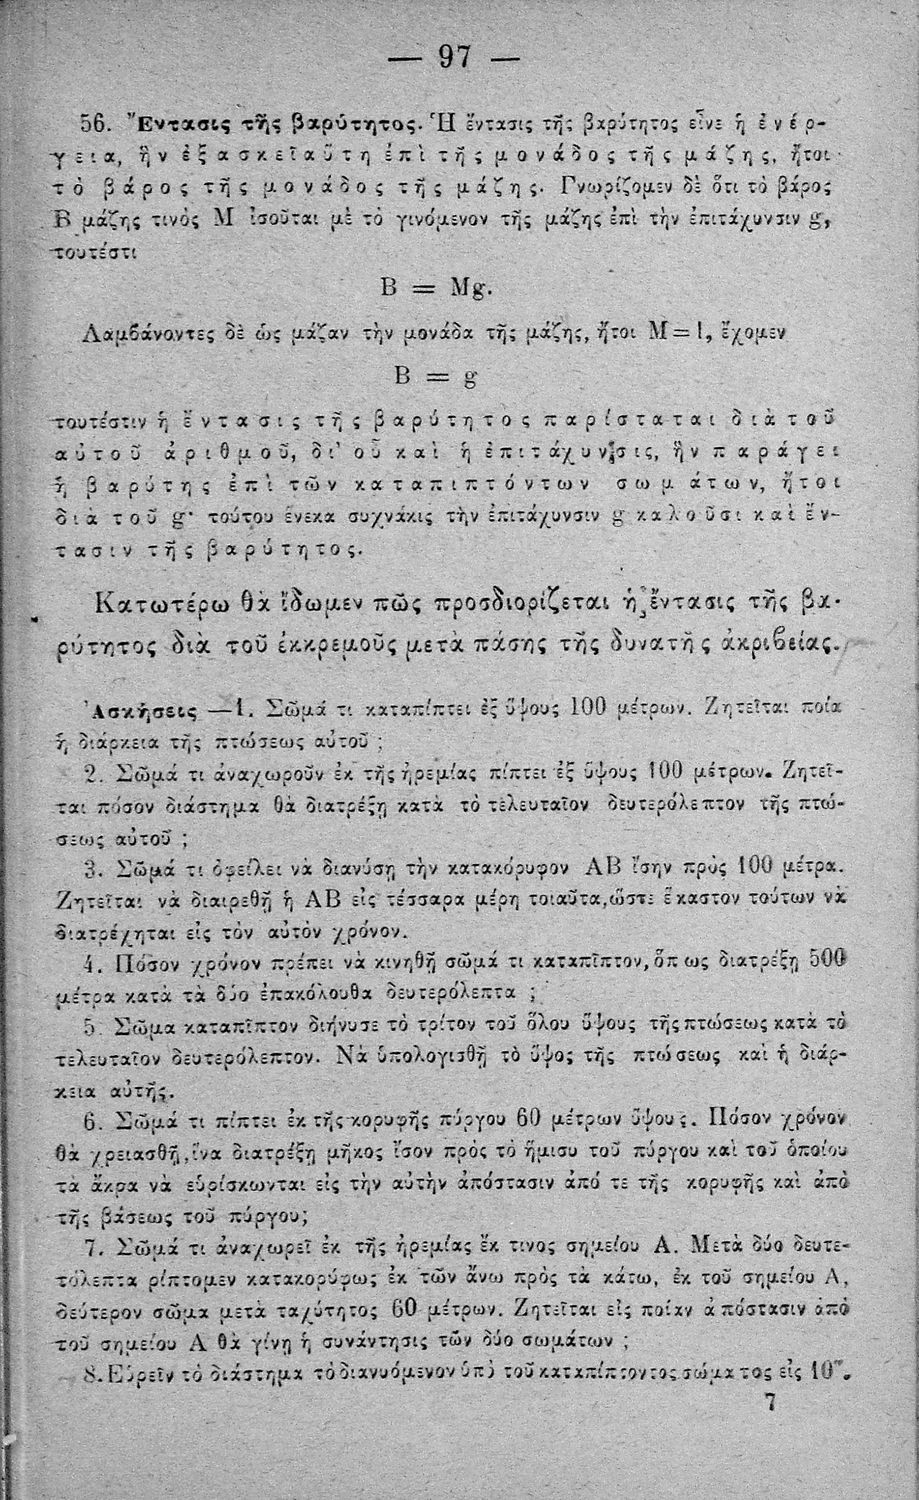 — 97 —
56. Ἔντασις τῆς βαρύτητος. Ἡ ἔντασις τῆς βαρύτητος εἶνε ἡ ἐνέρ-
γεια, ἣν ἐξασκεῖ αὕτη ἐπὶ τῆς μονάδος τῆς μάζης, ἤτοι
τὸ βάρος τῆς μονάδος τῆς μάζης. Γνωρίζομεν δὲ ὅτι τὸ βάρος
Β μάζης τινὸς Μ ἰσοῦται μὲ τὸ γινόμενον τῆς μάζης ἐπὶ τὴν ἐπιτάχυνσιν g,
τουτέστι
B = Mg.
Λαμβάνοντες δὲ ὡς μάζαν τὴν μονάδα τῆς μάζης, ἤτοι M = 1, ἔχομεν
B = g
τουτέστιν ἡ ἔντασις τῆς βαρύτητος παρίσταται διὰ τοῦ
αὐτοῦ ἀριθμοῦ, δι' οὗ καὶ ἡ ἐπιτάχυνσις, ἣν παράγει
ἡ βαρύτης ἐπὶ τῶν καταπιπτόντων σωμάτων, ἤτοι
διὰ τοῦ g· τούτου ἕνεκα συχνάκις τὴν ἐπιτάχυνσιν g καλοῦσι καὶ ἔν-
τασιν τῆς βαρύτητος.
Κατωτέρω θὰ ἴδωμεν πῶς προσδιορίζεται ἡ ἔντασις τῆς βα-
ρύτητος διὰ τοῦ ἐκκρεμοῦς μετὰ πάσης τῆς δυνατῆς ἀκριβείας.
Ἀσκήσεις —1. Σῶμά τι καταπίπτει ἐξ ὕψους 100 μέτρων. Ζητεῖται ποία
ἡ διάρκεια τῆς πτώσεως αὐτοῦ ;
2. Σῶμά τι ἀναχωροῦν ἐκ τῆς ἠρεμίας πίπτει ἐξ ὕψους 100 μέτρων. Ζητεῖ-
ται πόσον διάστημα θὰ διατρέξῃ κατὰ τὸ τελευταῖον δευτερόλεπτον τῆς πτώ-
σεως αὐτοῦ ;
3. Σῶμά τι ὀφείλει νὰ διανύσῃ τὴν κατακόρυφον ΑΒ ἴσην πρὸς 100 μέτρα.
Ζητεῖται νὰ διαιρεθῇ ἡ ΑΒ εἰς τέσσαρα μέρη τοιαῦτα, ὥστε ἕκαστον τούτων νὰ
διατρέχηται εἰς τὸν αὐτὸν χρόνον.
4. Πόσον χρόνον πρέπει νὰ κινηθῇ σῶμά τι καταπῖπτον, ὅπως διατρέξῃ 500
μέτρα κατὰ τὰ δύο ἐπακόλουθα δευτερόλεπτα ;
5. Σῶμα καταπῖπτον διήνυσε τὸ τρίτον τοῦ ὅλου ὕψους τῆς πτώσεως κατὰ τὸ
τελευταῖον δευτερόλεπτον. Νὰ ὑπολογισθῇ τὸ ὕψος τῆς πτώσεως καὶ ἡ διάρ-
κεια αὐτῆς.
6. Σῶμά τι πίπτει ἐκ τῆς κορυφῆς πύργου 60 μέτρων ὕψους. Πόσον χρόνον
θὰ χρειασθῇ, ἵνα διατρέξῃ μῆκος ἴσον πρὸς τὸ ἥμισυ τοῦ πύργου καὶ τοῦ ὁποίου
τὰ ἄκρα νὰ εὑρίσκωνται εἰς τὴν αὐτὴν ἀπόστασιν ἀπό τε τῆς κορυφῆς καὶ ἀπὸ
τῆς βάσεως τοῦ πύργου;
7. Σῶμά τι ἀναχωρεῖ ἐκ τῆς ἠρεμίας ἔκ τινος σημείου Α. Μετὰ δύο δευτε-
τόλεπτα ρίπτομεν κατακορύφως ἐκ τῶν ἄνω πρὸς τὰ κάτω, ἐκ τοῦ σημείου Α,
δεύτερον σῶμα μετὰ ταχύτητος 60 μέτρων. Ζητεῖται εἰς ποίαν ἀπόστασιν ἀπὸ
τοῦ σημείου Α θὰ γίνῃ ἡ συνάντησις τῶν δύο σωμάτων ;
8. Εὑρεῖν τὸ διάστημα τὸ διανυόμενον ὑπὸ τοῦ καταπίπτοντος σώματος εἰς 10″.
7